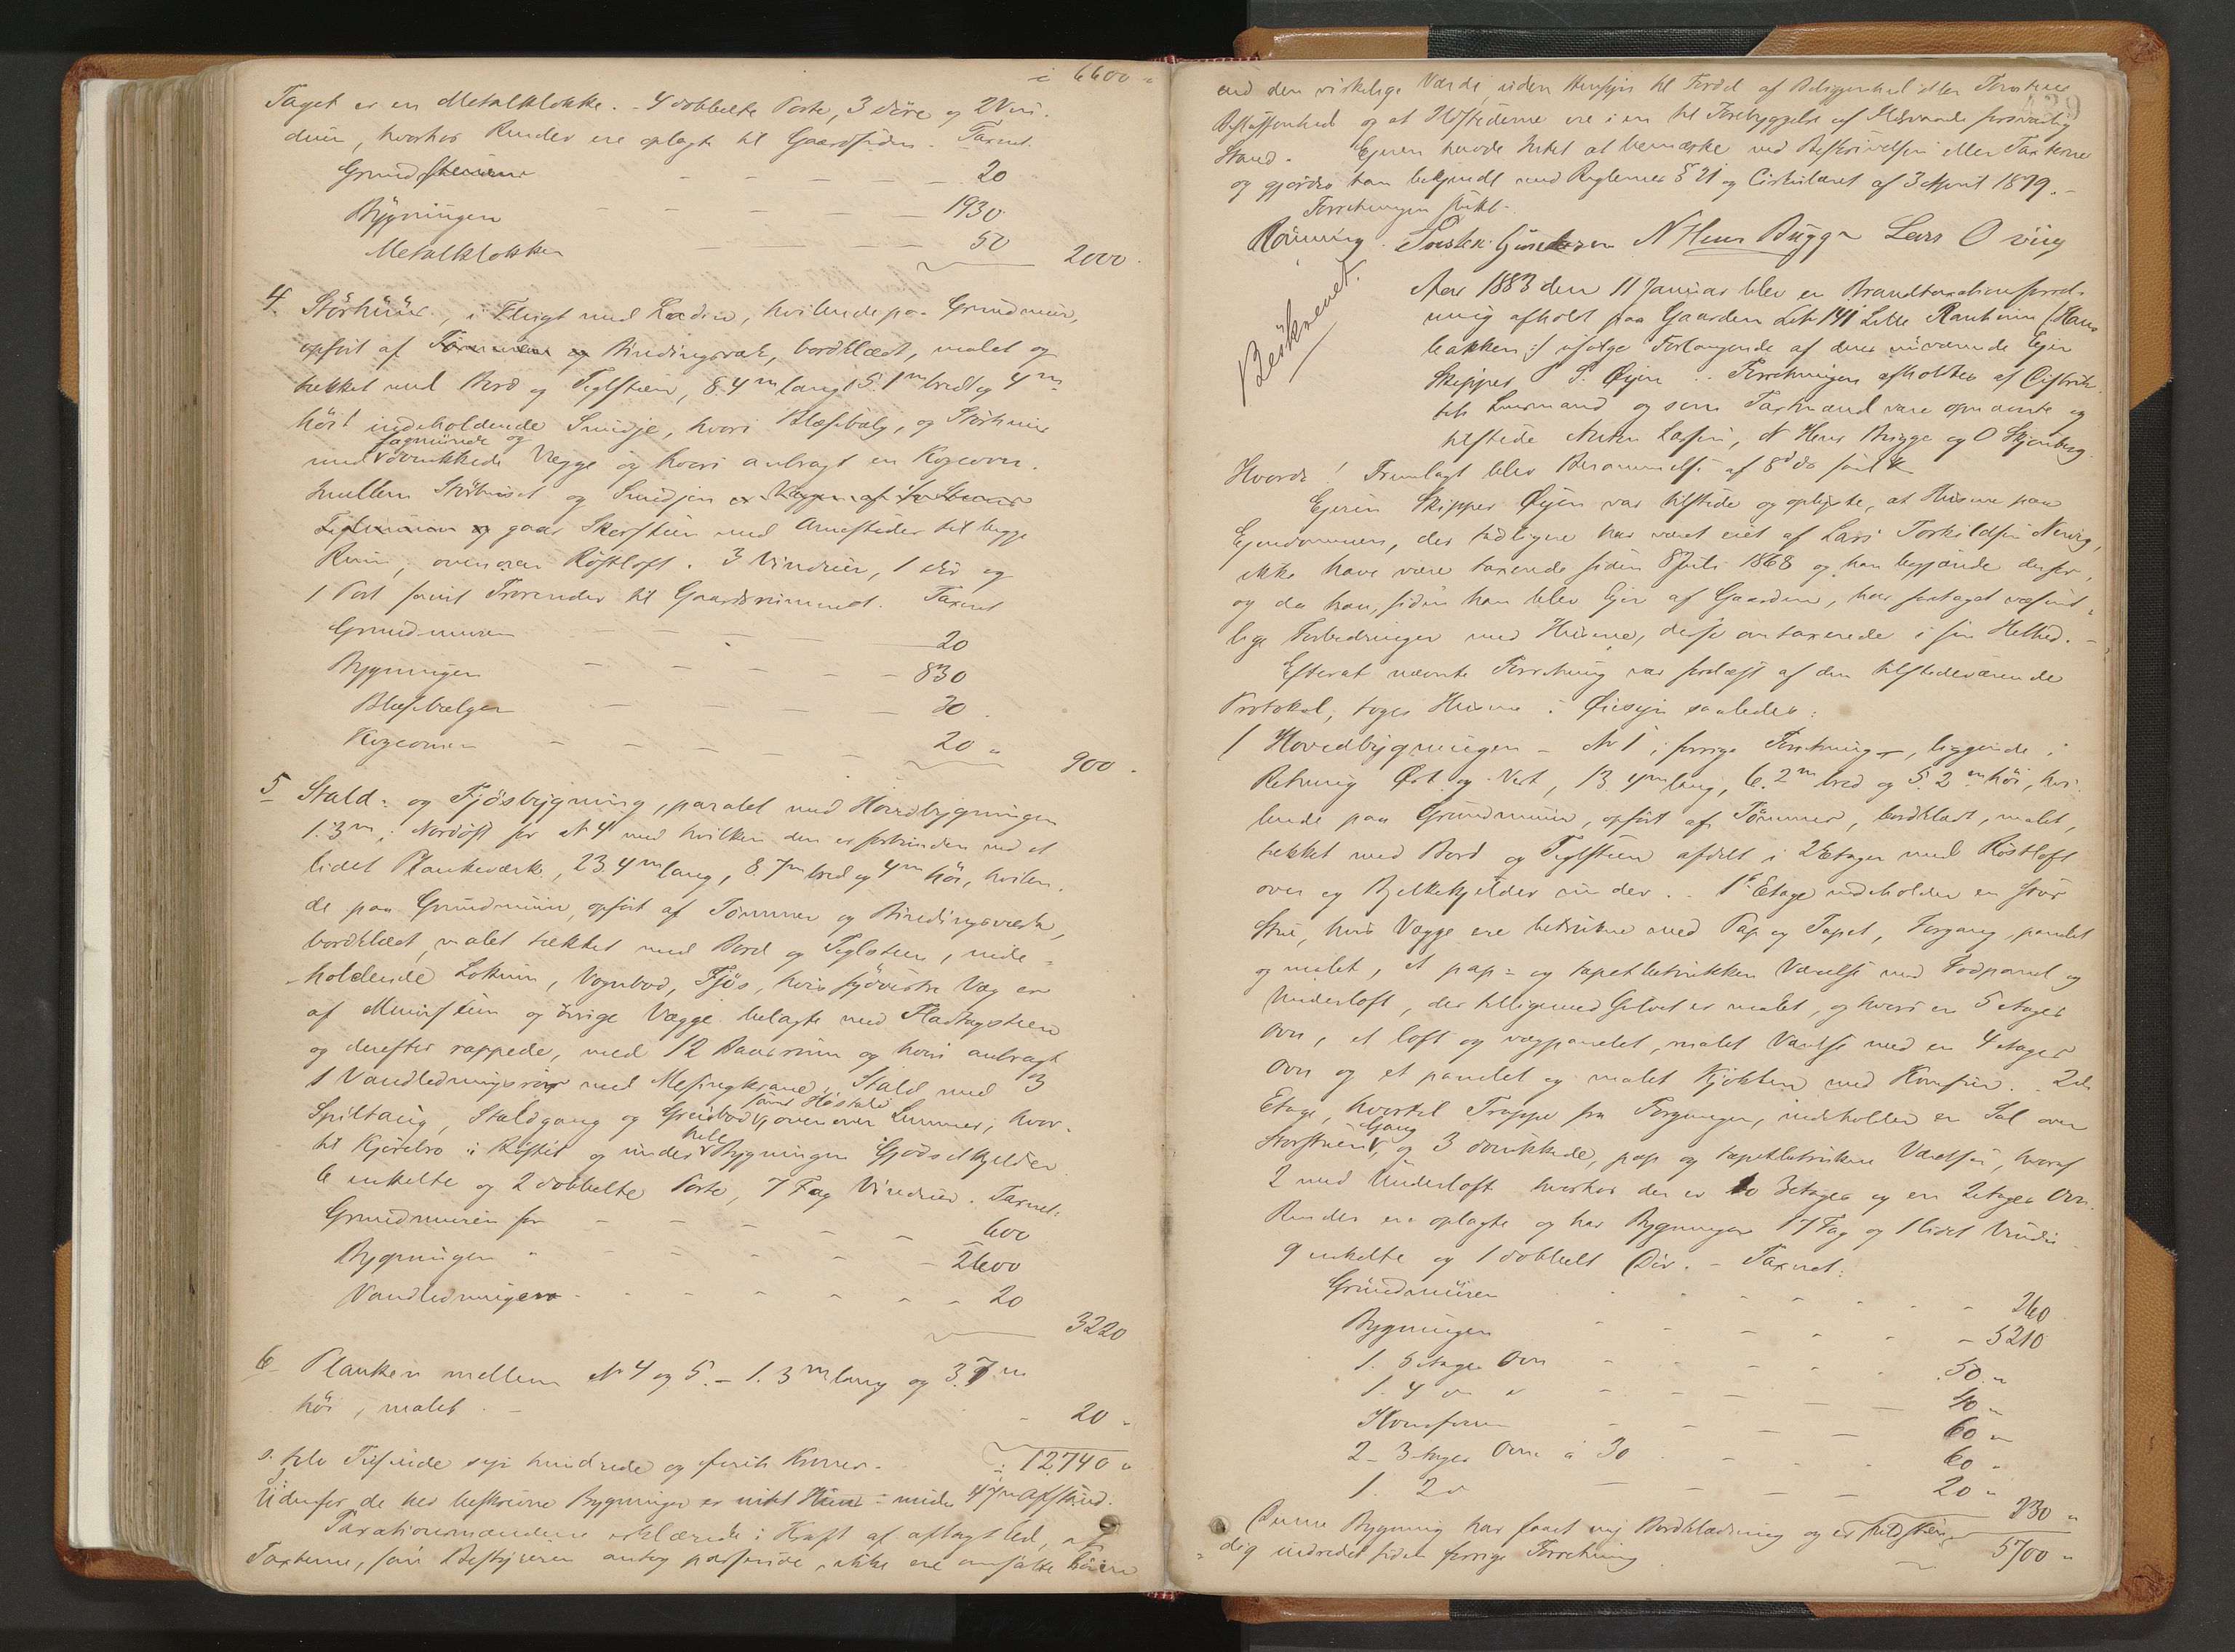 i 6600 "
Taget er en Metalklokke. - 4 dobbelte Porte, 3 Döre og 2 Vin-
duer, hvorhos Render ere oplagte til Gaardsiden. Taxeret
Grundstenene 20
Bygningen 1930
Metalklokken 50 2000.
4. Störhuus, i Flugt med Laden, hvilende paa Grundmuur,
opfört af Tömmer og Bindingsværk, bordklædt, malet og
tækket med Bord og Teglsteen, 8.4 m lang, 5.1 m bred og 4 m
höi indeholdende Smidje, hvori Blæsebælg, og Störhuus
med fagmurede og trukkede Vægge og hvori anbragt en Kogeovn.
Mellem Störhuset og Smidjen er Væggen af
og gaar Skorsteen med Arnesteder til begge
Rum, ovenover Röstloft. 3 Vinduer, 1 Dör og
1 Port samt Trærender til Gaardsrummet. Taxeret
Grundmuren 20
Bygningen 830
Blæsebælgen 30
Kogeovnen 20 " 900.
5 Stald- og Fjösbygning, paralel med Hovedbygningen
1.3 m Nordost for No 4 med hvilken den er forbunden ved et
lidet Plankeværk, 23.4 m lang, 8.7 m bred og 4 m höi, hvilen-
de paa Grundmuur, opfört af Tömmer og Bindingsværk,
bordklædt, malet tækket med Bord og Teglsteen, inde-
holdende Lokum, Vognbod, Fjös, hvis sydvestre Væg er
af Muursteen og övrige Vægge belagte med Fladtagsteen
og derefter rappede, med 12 Baasrum og hvori anbragt
1 Vandledningsrör med Messingkrane, Stald med 3
Spiltaug, Staldgang og Greidbod samt Höstald, ovenover Lemmer, hvor-
til Kjörebro i Röstet og under hele Bygningen Gjödselkjelder.
6 enkelte og 2 dobbelte Porte, 7 Fag Vinduer. Taxeret:
Grundmuren for 600
Bygningen " 2600
Vandledningen 20
3220
6 Planken mellem No 4 og 5. - 1.3 m lang og 3.7 m
höi, malet. - 20 "
s. tolv Tusinde syv hundrede og firti Kroner. 12740 "
Udenfor de her beskrevne Bygninger er intet Huus under Afstand.
Taxationsmændene erklærede i Kraft af aflagt Ed, at
Taxterne, som Bestyreren antog passende, ikke ere ansatte höiere
end den virkelige Værdi, uden Hensyn til Fordel af Beliggenhed eller Tomtens
Beskaffenhed og at Ildstederne ere i en til Forebyggelse af Ildsvaade forsvarlig
Stand. Ejeren havde Intet at bemærke ved Beskrivelsen eller Taxterne
og gjordes han bekjendt med Reglernes § 21 og Cirkulæret af 3 April 1879. -
Forretningen sluttet.
Rönning. Torsten Gundersen N Henr Bugge Lars O
429
Beskrevet.
Aar 1883 den 11 Januar blev en Brandtaxationsforret-
ning afholdt paa Gaarden Litr 141 Lille Ranheim (Hans
bakken) ifölge Forlangende af dens nuværende Ejer
Skipper S. Øyen. Forretningen afholdtes af Distrik-
tets Lensmand og som Taxtmænd vare opnævnte og
tilstede Anton Lassen, N Henr Bugge og O Skjenberg.
Hvorda! Fremlagt blev Berammelse af 8d ds saal
Ejeren Skipper Øyen var tilstede og oplyste, at Husene paa
Ejendommen, der tidligere har været eiet af Lars Torkildsen Nervig,
ikke have været taxerede siden 8 Juli 1868 og han begjærede derfor,
og da han, siden han blev Ejer af Gaarden, har foretaget væsent-
lige Forbedringer med Husene, disse omtaxerede i sin Helhed. -
Efterat nævnte Forretning var forelæst af den tilstedeværende
Protokol, toges Husene i Øiesyn saaledes:
1 Hovedbygningen - No 1, i forrige Forretning, liggende i
Retning Øst og Vest, 13.4 m lang, 6.2 m bred og 5.2 m höi, hvi-
lende paa Grundmuur, opfört af Tömmer, bordklædt, malet,
tækket med Bord og Teglsteen afdelt i 2 Etager med Röstloft
over og Bjelkekjelder under. - 1e Etage indeholder en stor
Stue, hvis Vægge ere betrukne med Pap og Tapet, Forgang, panelet
og malet, et pap- og tapetbetrukken Værelse med Fodpanel og
Underloft, der tilligemed Gulvet er malet, og hvori en 5 etages
Ovn, et loft og vægpanelet, malet Værelse med en 4 etages
Ovn og et panelet og malet Kjökken med Komfur. 2den
Etage, hvortil Trappe fra Forgangen, indeholder en Sal over
Storstuen, Gang og 3 trukkede, pap og tapetbetrukne Værelser, hvoraf
2 med Underloft hvorhos der er to 3 etages og en 2 etages Ovn.
Render ere oplagte og har Bygningen 17 Fag og 1 lidet Vindu
9 enkelte og 1 dobbelt Dör. - Taxeret:
Grundmuren 260
Bygningen 5210
1. 5 etages Ovn 50 "
1. 4 " " 40 "
Komfuren 60 "
2 - 3 etages Ovne à 30 60 "
1. 2 " 20 "
230 "
Denne Bygning har faaet ny Bordklædning og er fuldstæn-
dig indredet siden forrige Forretning 5700 "